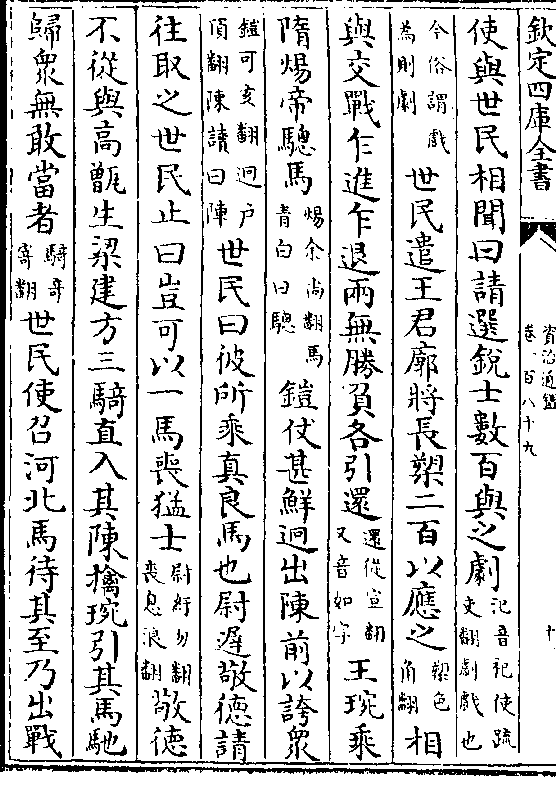 欽定四庫全書
資治通鑑
卷一百八十九
十
使與世民相聞曰請選銳士數百與之劇汜音祀使疏吏翻劇戲也
今俗謂戲為則劇世民遣王君廓將長槊二百以應之槊色角翻相
與交戰乍進乍退兩無勝負各引還還從宣翻又音如字王琬乘
隋煬帝驄馬煬余尚翻馬青白曰驄鎧仗甚鮮逈出陳前以誇衆
鎧可亥翻逈户頂翻陳讀曰陣世民曰彼所乘真良馬也尉遲敬德請
往取之世民止曰豈可以一馬喪猛士尉紆勿翻喪息浪翻敬德
不從與高甑生梁建方三騎直入其陳擒琬引其馬馳
歸衆無敢當者騎奇寄翻世民使召河北馬待其至乃出戰